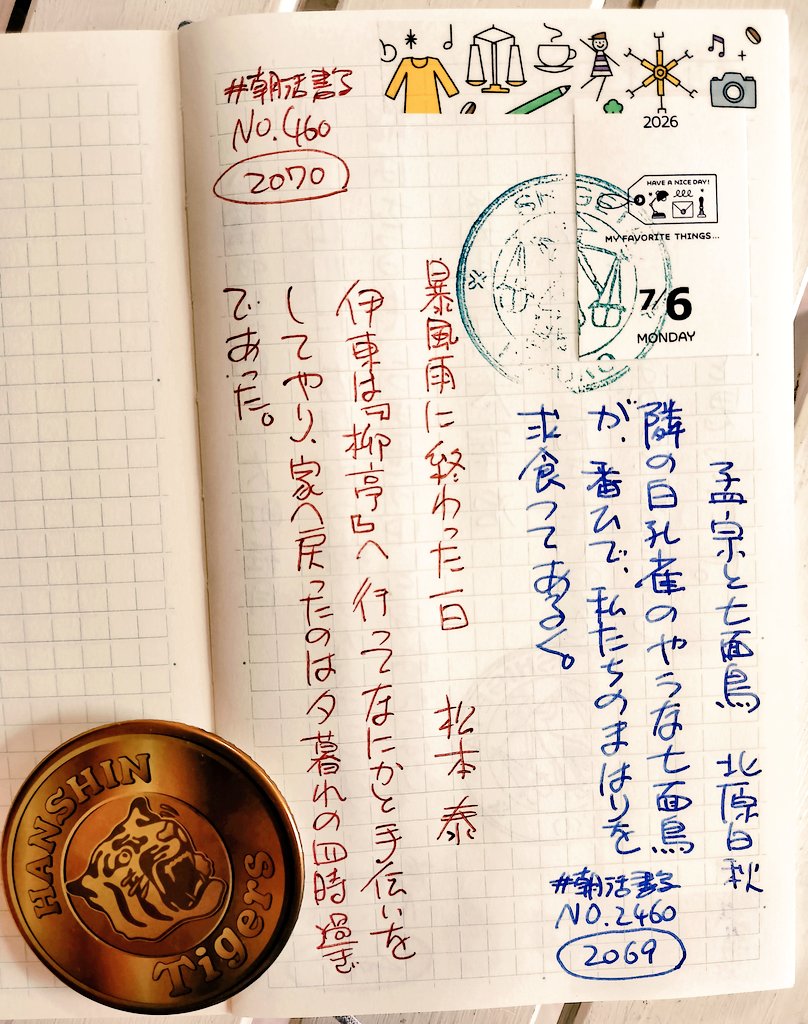 2026
HAVE A NICE DAY!
MY FAVORITE THINGS...
7/6
MONDAY
孟宗と七面鳥　北原白秋
隣の白孔雀のやうな七面鳥
が、番ひで、私たちのまはりを
求食つてあるく。
#朝活書写
NO.2460
2069
#朝活書写
NO.460
2070
暴風雨に終わった一日　松本泰
伊東は『柳亭』へ行ってなにかと手伝いを
してやり、家へ戻ったのは夕暮れの四時過ぎ
であった。
HANSHIN
Tigers